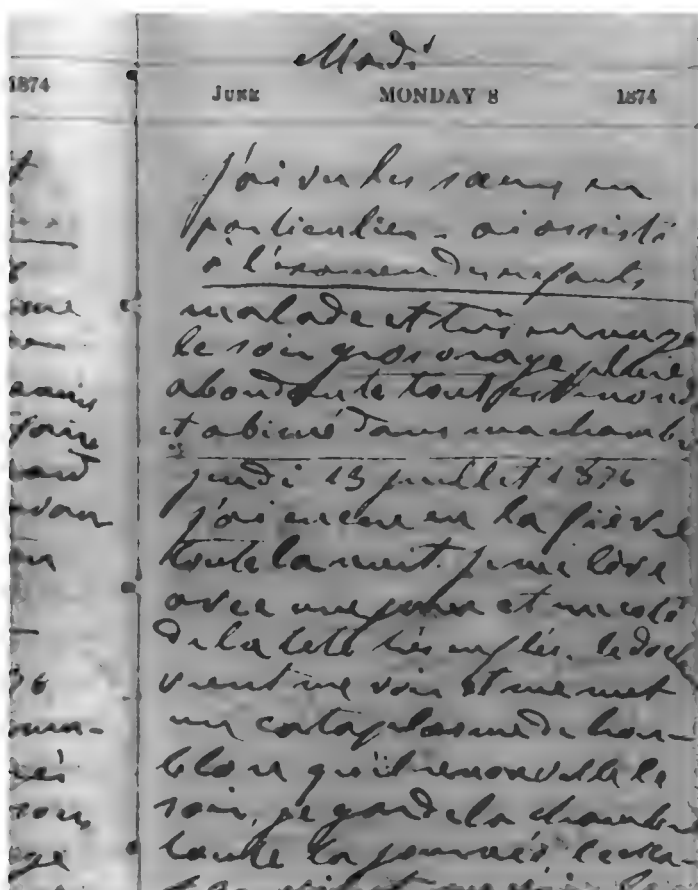 1874
Mardi
JUNE MONDAY 8 1874
j'ai vu les sœurs en
particulier - ai assisté
à l'examen des enfants,
malade et très
le soir gros orage pluie
abondante tout est
et abimé dans ma chambre
jeudi 13 juillet 1876
j'ai encore eu la fièvre
toute la nuit. je me lève
avec une joue et un coté
de la tete très enflés. le doct
vient me voir et me met
un cataplasme de hou-
blon qu'il renouvelle le
soir. je garde la chambre
toute la journée